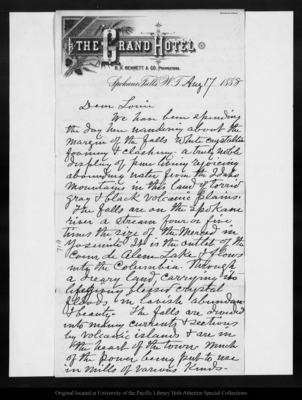 THE GRAND HOTEL
R. H. BENNETT & CO. PROPRIETORS.
Spokane Falls W.T. Aug 17 1888
Dear Louie
We have been spending
the day here wandering about the
margin of the falls White crystalline
foaming & dashing a truly noble
display of pure living rejoicing
abounding water from the Idaho
Mountains in this land of torrid
gray & black volcanic plains.
The falls are on the Spokane
river a stream four or five
times the size of the Merced in
Yosemite It is the outlet of the
Coeur de Alene Lake & flows
into the Columbia through
a dreary land carrying its
lifegiving blessed crystal
floods in lavish abundance
& beauty. The falls are divided
into many currents & sections
by volcanic islands & are in
the heart of the town Much
of the power being put to use
in mills of various kinds.
Original located at University of the Pacific Library Holt-Atherton Special Collections